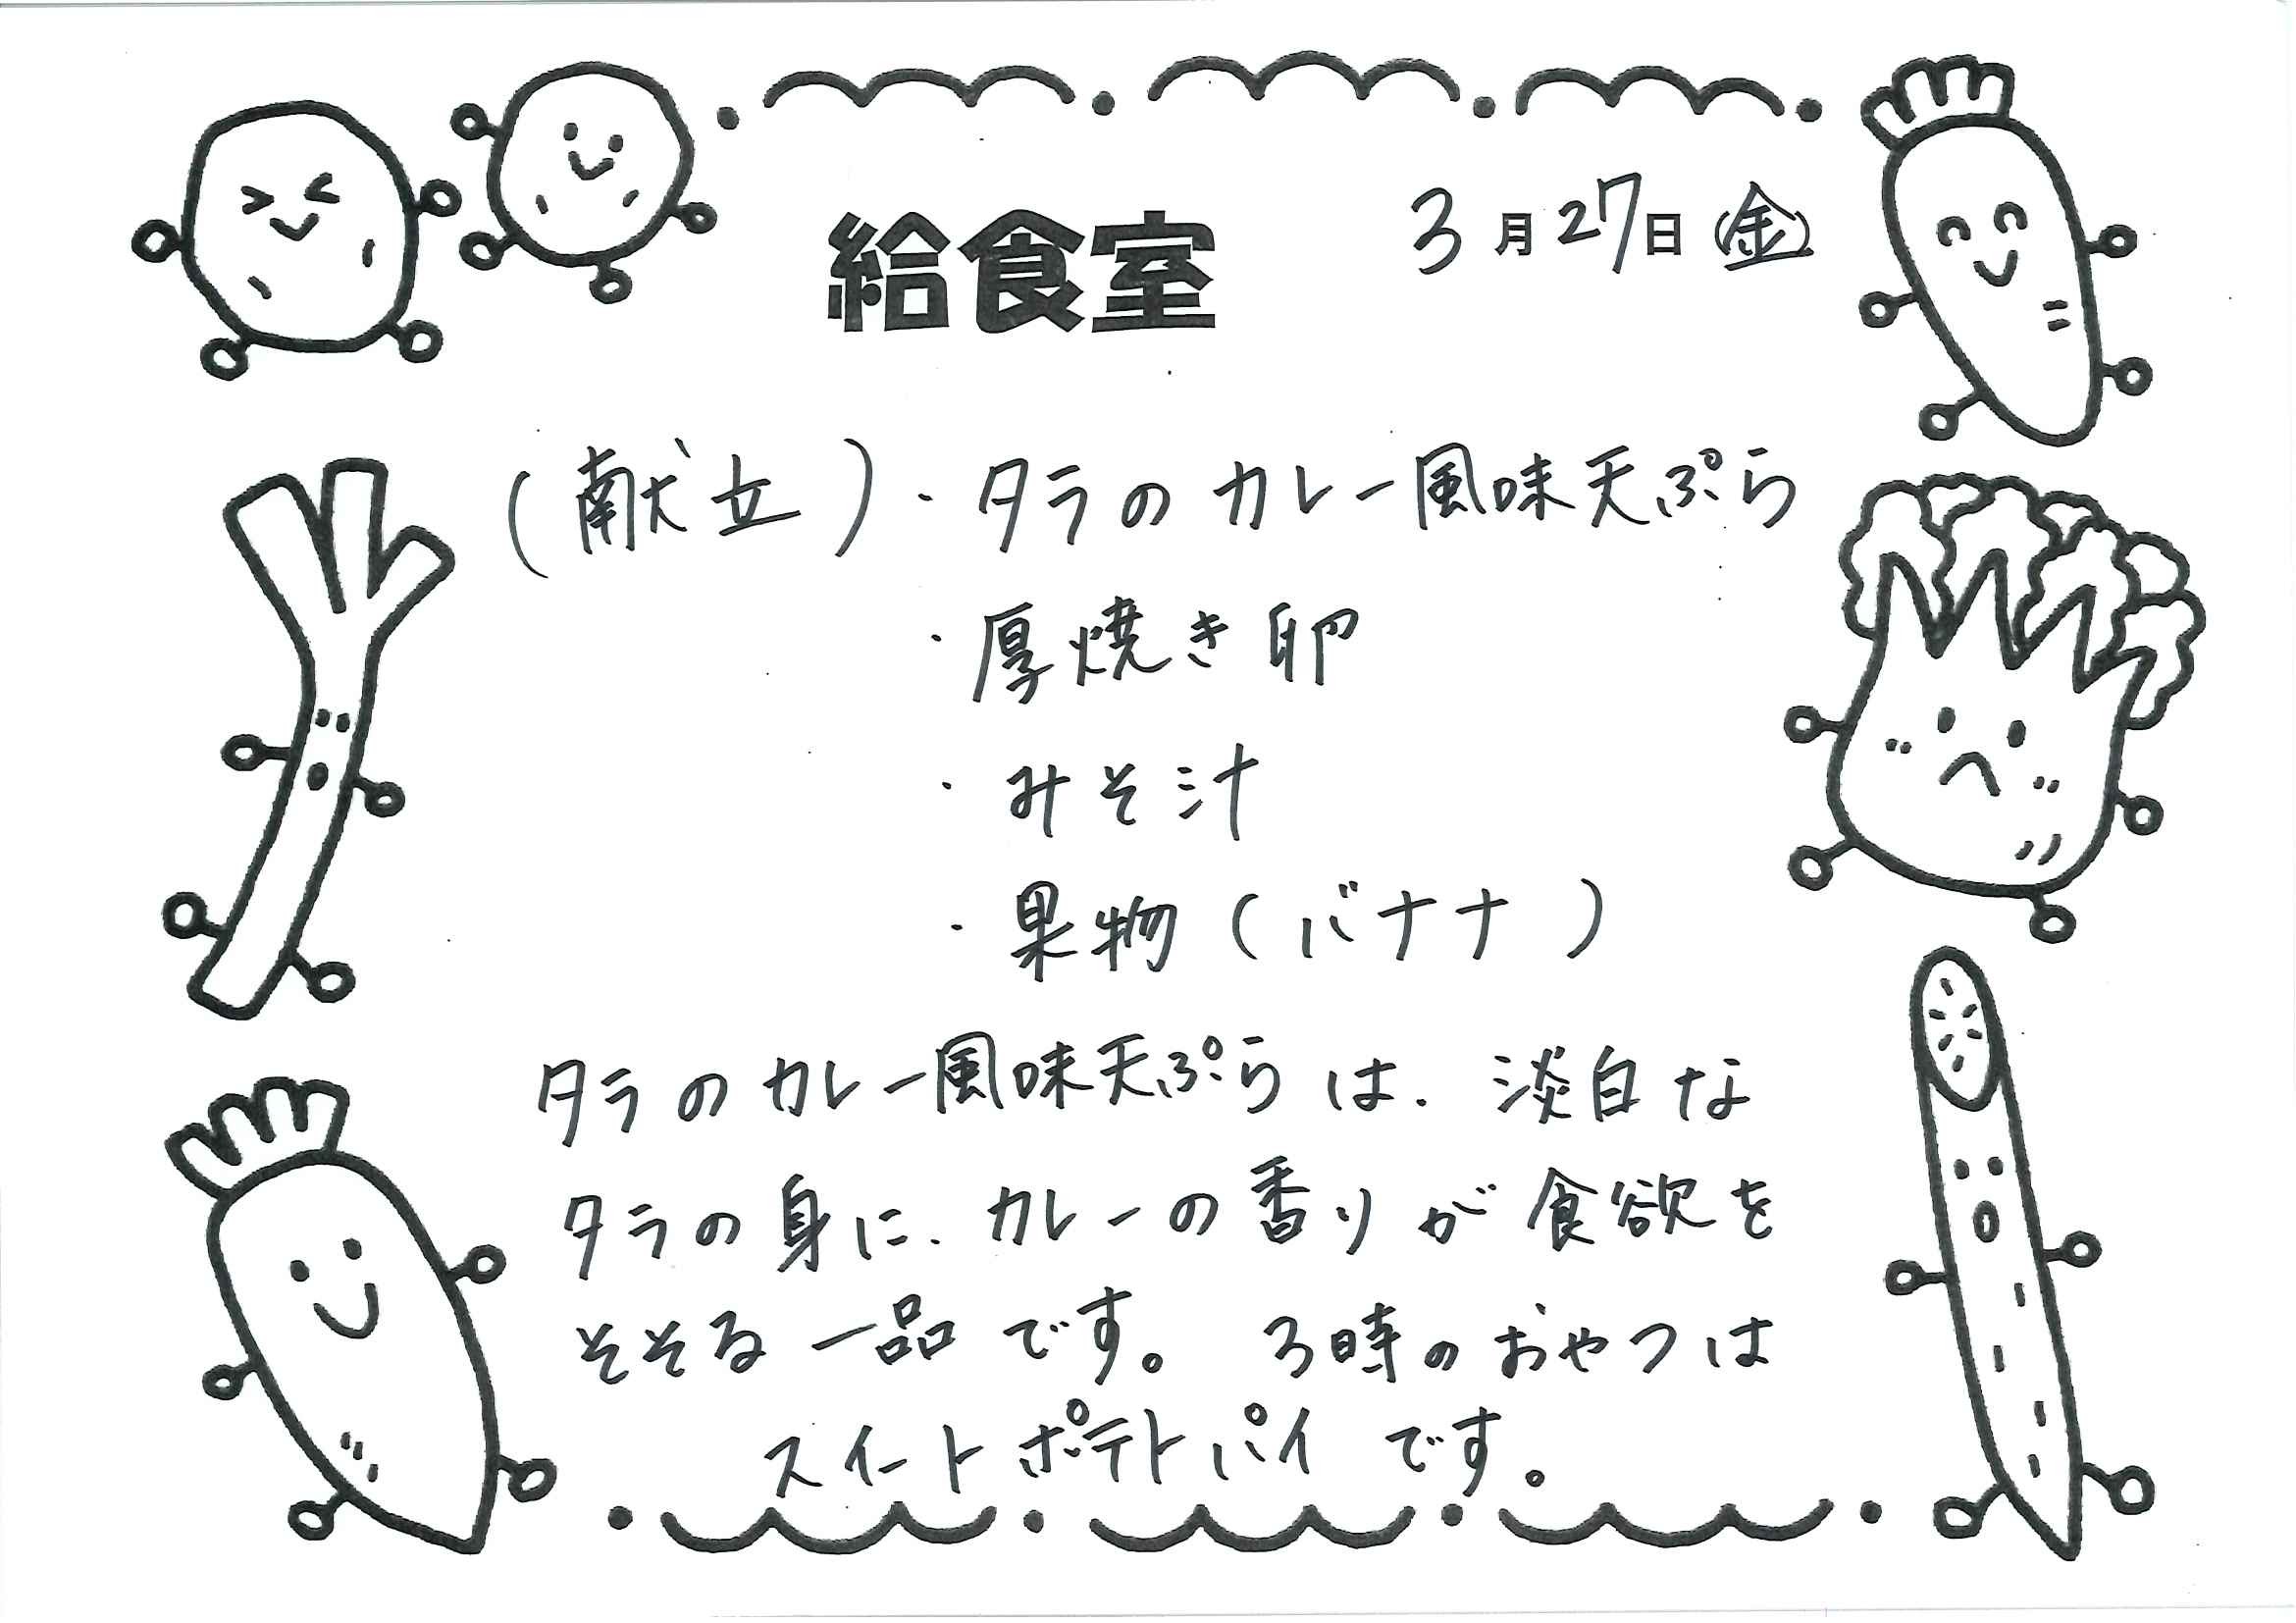 給食室
3月27日(金)
(献立)・タラのカレー風味天ぷら
・厚焼き卵
・みそ汁
・果物(バナナ)
タラのカレー風味天ぷらは、淡白な
タラの身に、カレーの香りが食欲を
そそる一品です。3時のおやつは
スイートポテトパイです。